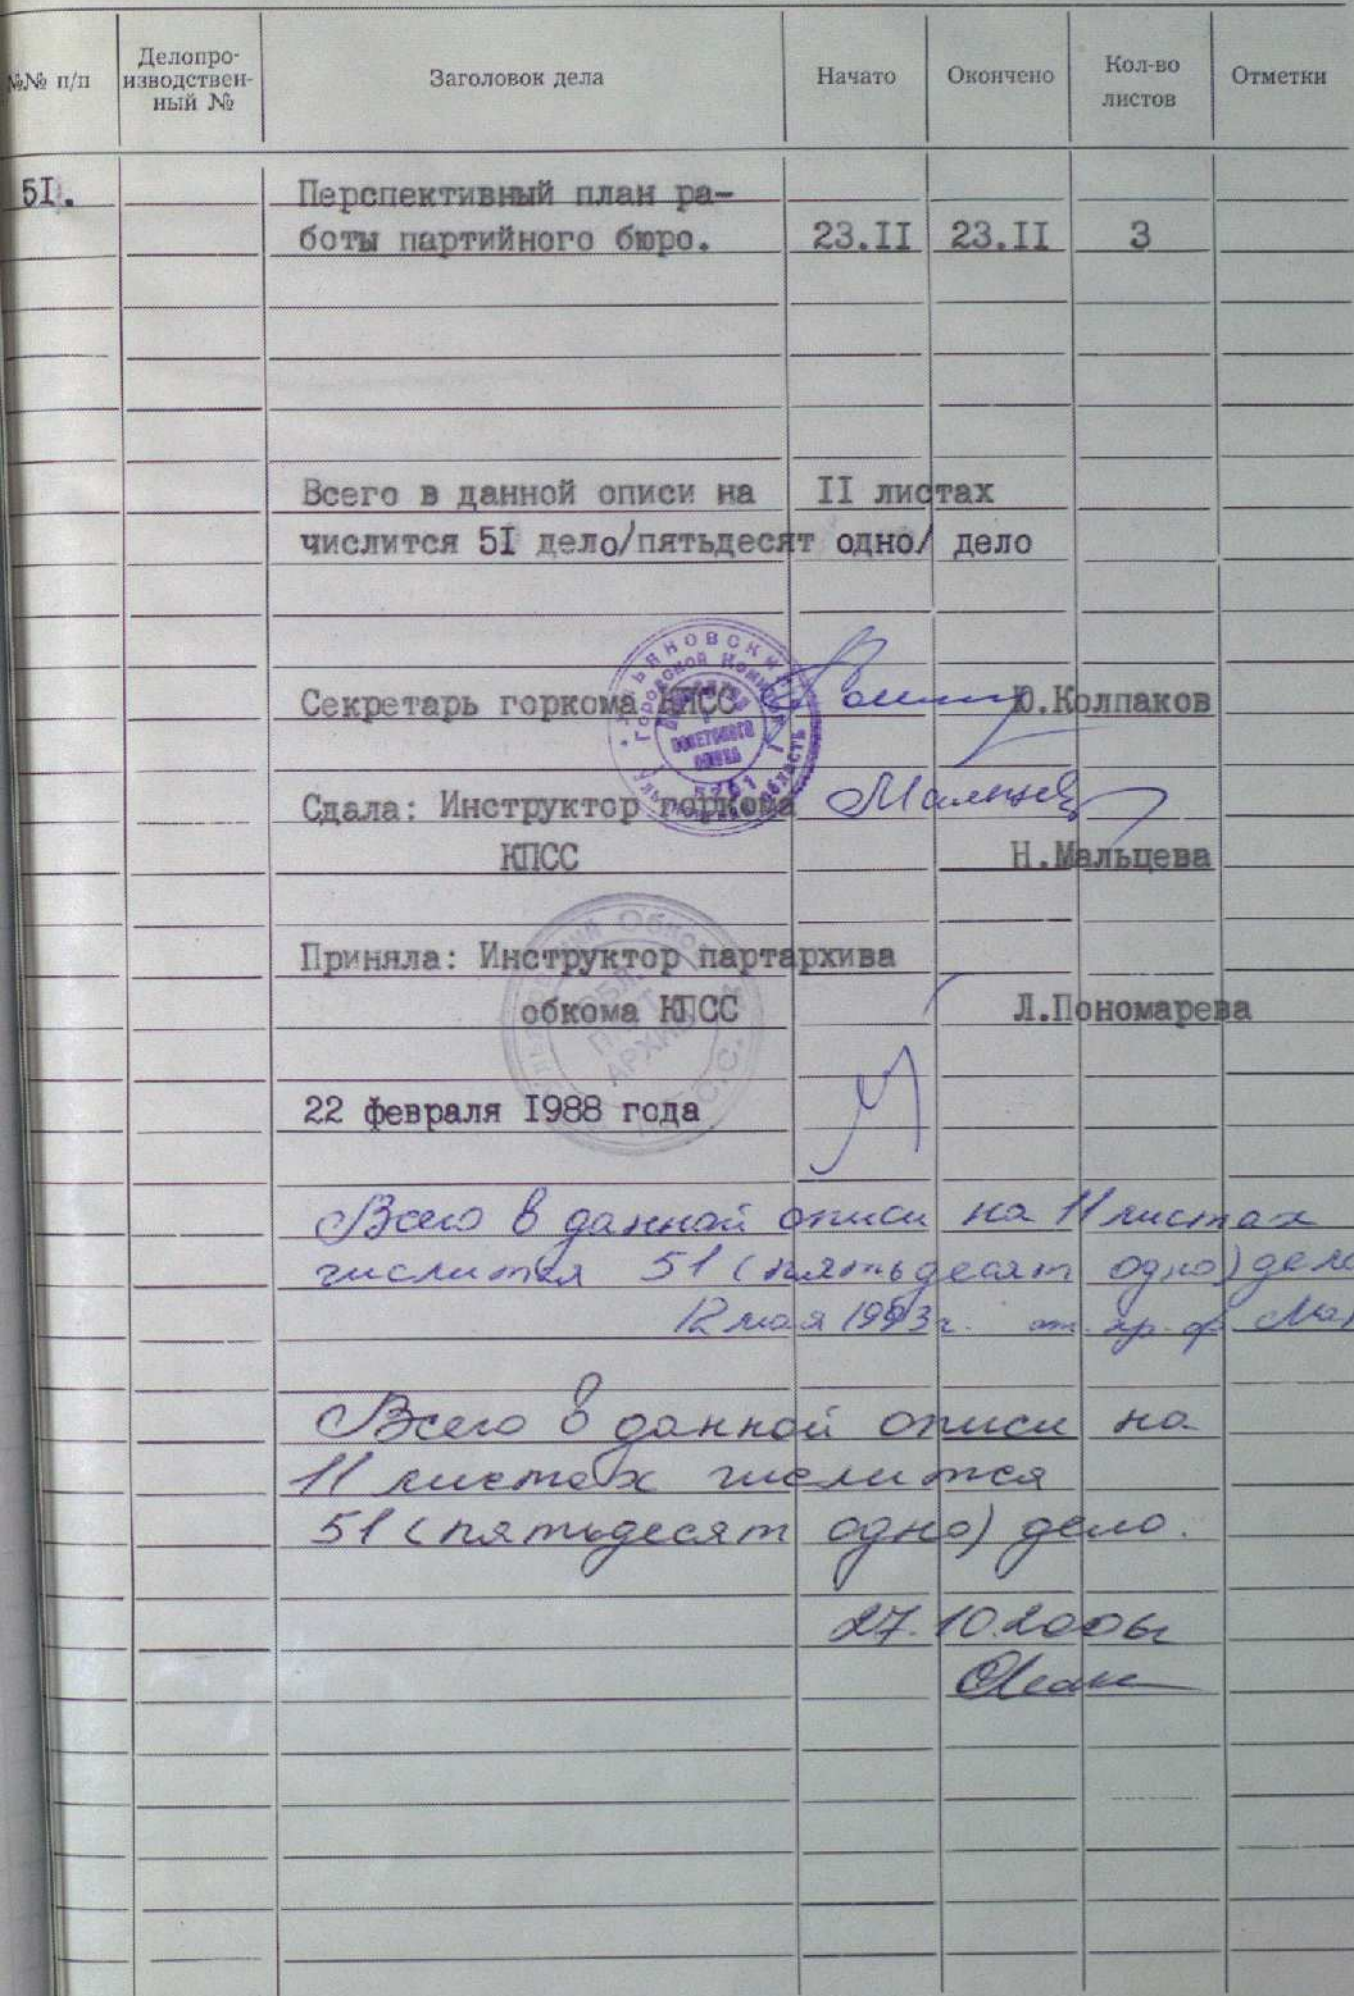 №№ п/п
Делопро-
изводствен-
ный №
Заголовок дела
Начато
Окончено
Кол-во
листов
Отметки
5I.
Перспективный план ра-
боты партийного бюро. 23.II 23.II 3
Всего в данной описи на II листах
числится 5I дело/пятьдесят одно/ дело
Секретарь горкома КПСС Ю.Колпаков
Сдала: Инструктор горкома
КПСС Н.Мальцева
Приняла: Инструктор партархива
обкома КПСС Л.Пономарева
22 февраля I988 года
Всего в данной описи на 11 листах
числится 51 (пятьдесят одно) дело
12 мая 1993г.
Всего в данной описи на
11 листах числится
51 (пятьдесят одно) дело.
27.10.2006г